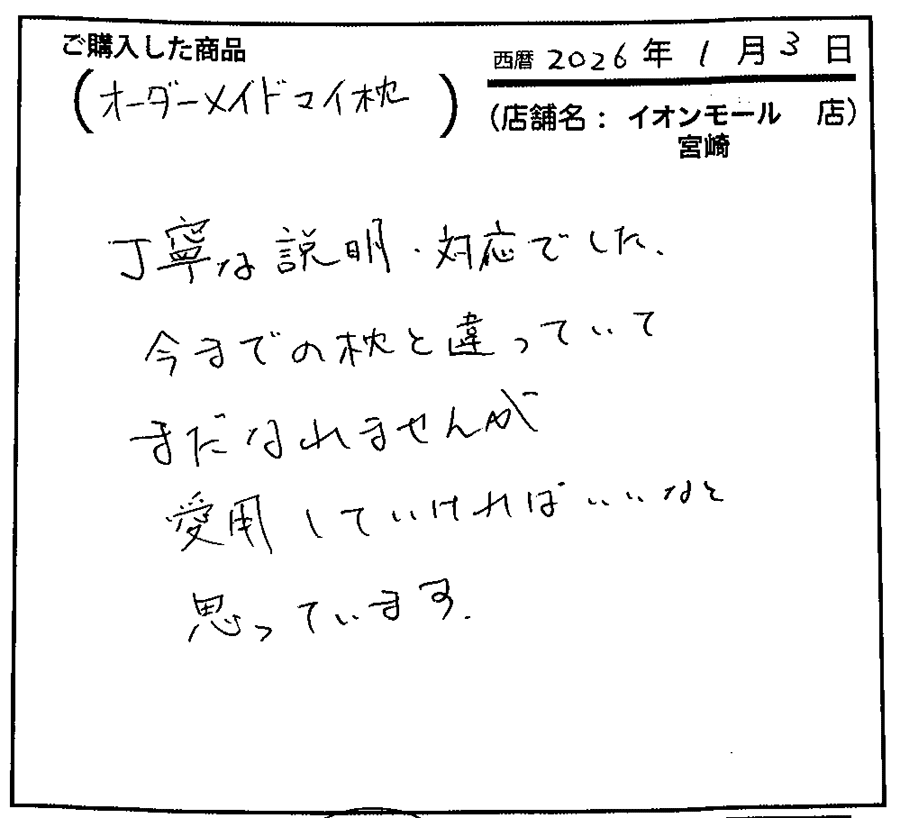 ご購入した商品
(オーダーメイドマイ枕)
西暦 2026年 1月 3日
(店舗名: イオンモール 店)
宮崎
丁寧な説明・対応でした、
今までの枕と違っていて
まだなれませんが
愛用していければいいなと
思っています.